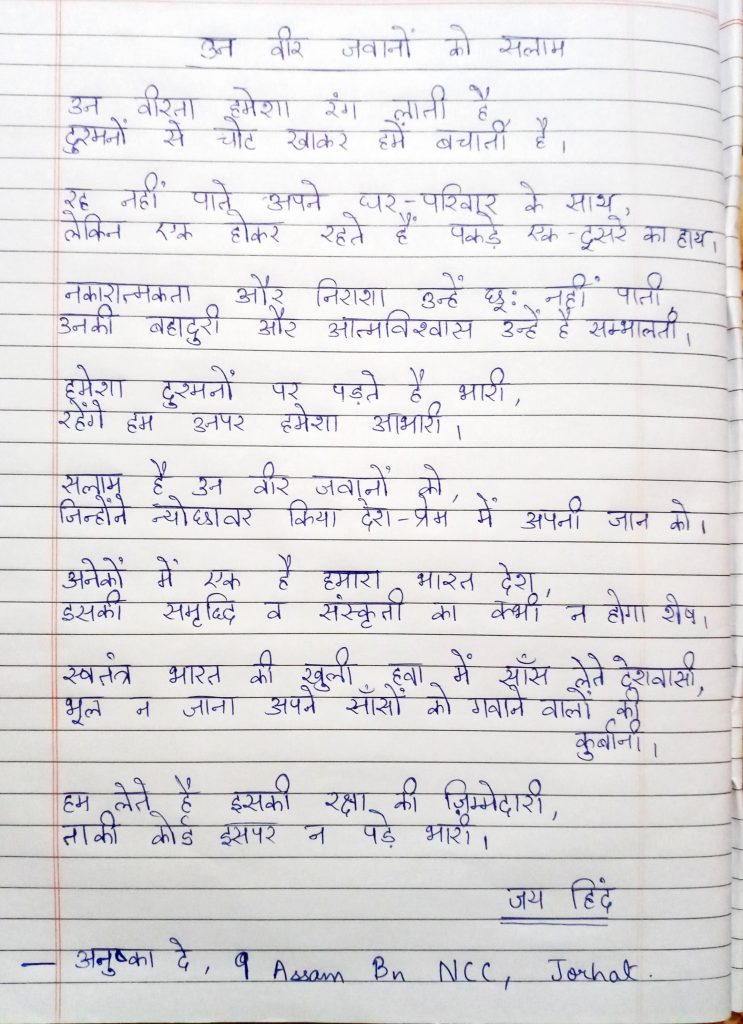 उन वीर जवानों को सलाम
उन वीरता हमेशा रंग लाती है
दुश्मनों से चोट खाकर हमें बचाती है।
रह नहीं पाते अपने घर-परिवार के साथ,
लेकिन एक होकर रहते हैं पकड़े एक-दूसरे का हाथ।
नकारात्मकता और निराशा उन्हें छू: नहीं पाती,
उनकी बहादुरी और आत्मविश्वास उन्हें है सम्भालती।
हमेशा दुश्मनों पर पड़ते है भारी,
रहेंगे हम उनपर हमेशा आभारी।
सलाम है उन वीर जवानों को,
जिन्होंने न्योछावर किया देश-प्रेम में अपनी जान को।
अनेकों में एक है हमारा भारत देश,
इसकी समृद्धि व संस्कृती का कभी न होगा शेष।
स्वतंत्र भारत की खुली हवा में साँस लेते देशवासी,
भूल न जाना अपने साँसों को गवाने वालों की
कुर्बानी।
हम लेते है इसकी रक्षा की ज़िम्मेदारी,
ताकी कोई इसपर न पड़े भारी।
जय हिंद
— अनुष्का दे, 9 Assam Bn NCC, Jorhat.